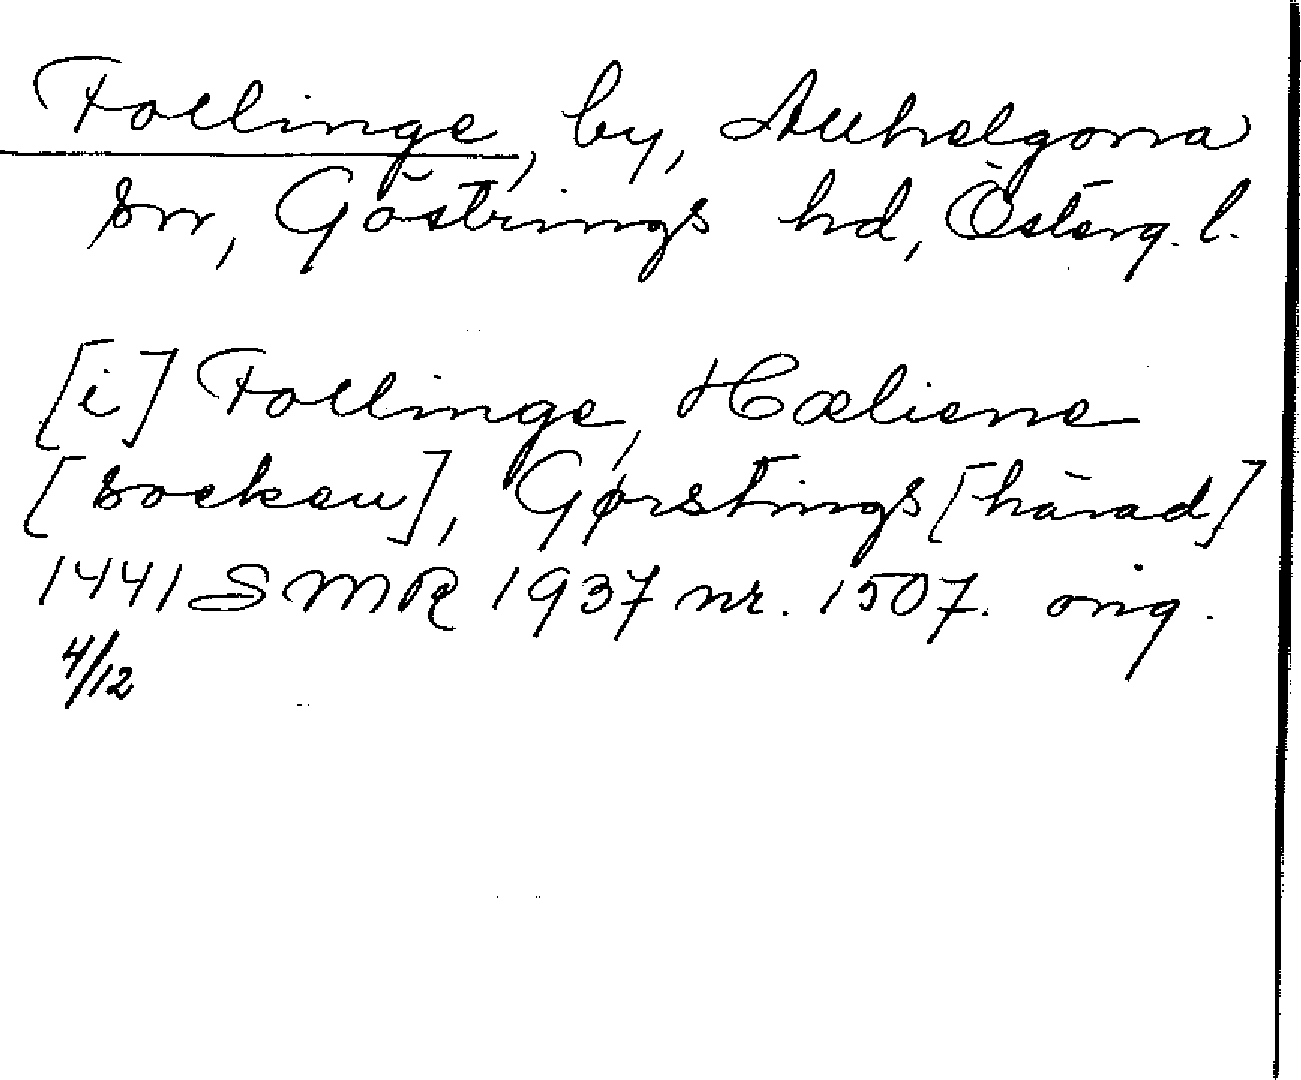 Follinge, by, Allhelgona
sn, Göstrings hd, Österg. l.
[i] Follinge, Hæliene
[socken], Gørstings [härad]
1441 SMR 1937 nr. 1507. orig.
4/12